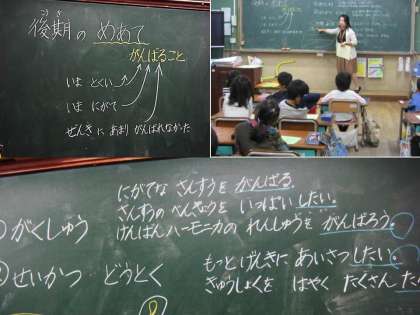 こうき
後期のめあて
がんばること
いま とくい
いま にがて
ぜんきに あまり がんばれなかった
にがてな さんすうを がんばる。
さんすうの べんきょうを いっぱいしたい。
けんばんハーモニカの れんしゅうを がんばろう。
がくしゅう
もっと げんきに あいさつしたい。
せいかつ どうとく
きゅうしょくを はやく たくさん